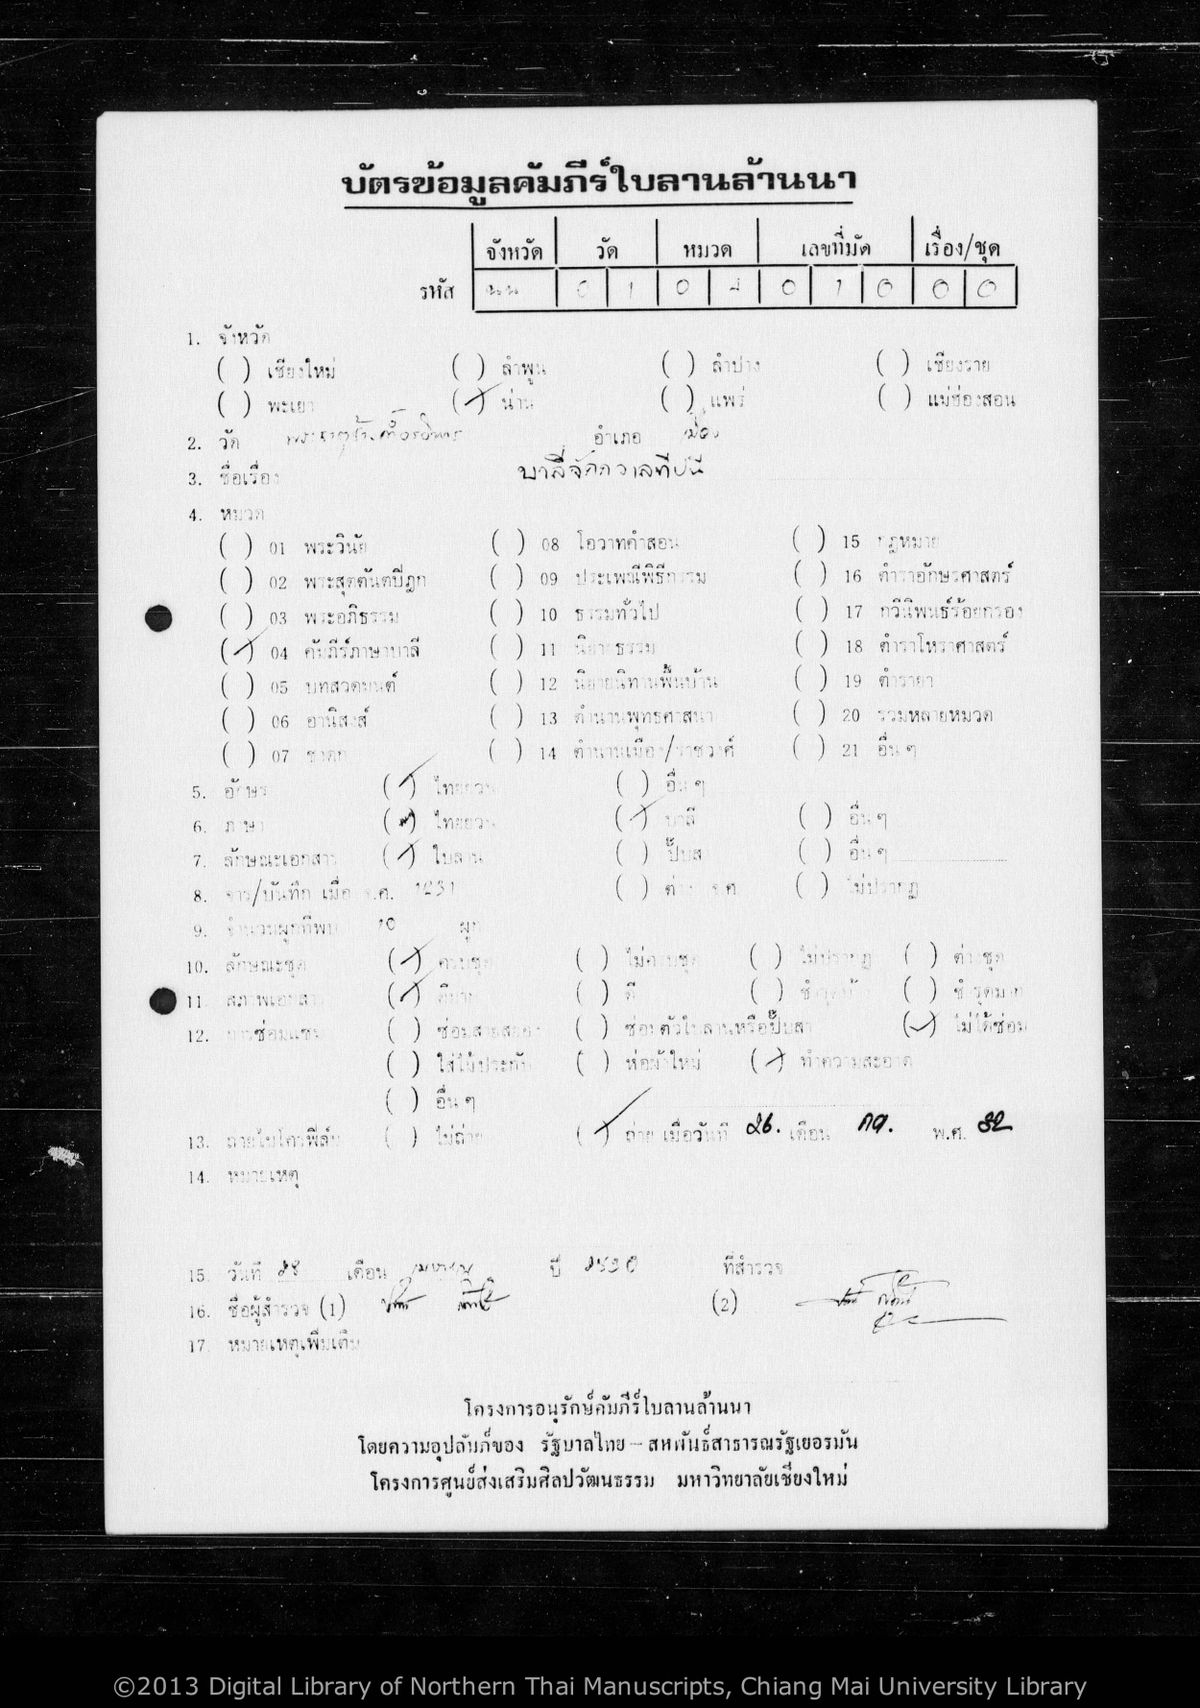 บัตรข้อมูลคัมภีร์ใบลานล้านนา
จังหวัด วัด หมวด เลขที่มัด เรื่อง/ชุด
รหัส นน 0 1 0 4 0 1 0 0 0
1. จังหวัด
( ) เชียงใหม่ ( ) ลำพูน ( ) ลำปาง ( ) เชียงราย
( ) พะเยา (/) น่าน ( ) แพร่ ( ) แม่ฮ่องสอน
2. วัด พระธาตุช้างค้ำวรวิหาร อำเภอ เมือง
3. ชื่อเรื่อง บาลีจักกวาลทีปนี
4. หมวด
( ) 01 พระวินัย ( ) 08 โอวาทคำสอน ( ) 15 กฎหมาย
( ) 02 พระสุตตันตปิฎก ( ) 09 ประเพณีพิธีกรรม ( ) 16 ตำราอักษรศาสตร์
( ) 03 พระอภิธรรม ( ) 10 ธรรมทั่วไป ( ) 17 กวีนิพนธ์ร้อยกรอง
(/) 04 คัมภีร์ภาษาบาลี ( ) 11 นิยายธรรม ( ) 18 ตำราโหราศาสตร์
( ) 05 บทสวดมนต์ ( ) 12 นิยายนิทานพื้นบ้าน ( ) 19 ตำรายา
( ) 06 อานิสงส์ ( ) 13 ตำนานพุทธศาสนา ( ) 20 รวมหลายหมวด
( ) 07 ชาดก ( ) 14 ตำนานเมือง/ราชวงศ์ ( ) 21 อื่นๆ
5. อักษร (/) ไทยยวน ( ) อื่นๆ
6. ภาษา ( ) ไทยยวน (/) บาลี ( ) อื่นๆ
7. ลักษณะเอกสาร (/) ใบลาน ( ) ปั๊บสา ( ) อื่นๆ
8. จาร/บันทึก เมื่อ จ.ศ. ( ) ต่าง จ.ศ. ( ) ไม่ปรากฏ
9. จำนวนผูกที่พบ 10 ผูก
10. ลักษณะชุด (/) ครบชุด ( ) ไม่ครบชุด ( ) ไม่ปรากฏ ( ) ต่างชุด
11. สภาพเอกสาร (/) ดีมาก ( ) ดี ( ) ชำรุด ( ) ชำรุดมาก
12. การซ่อมแซม ( ) ซ่อมสายสยอง ( ) ซ่อมตัวใบลานหรือปั๊บสา (/) ไม่ได้ซ่อม
( ) ใส่ไม้ประกับ ( ) ห่อผ้าใหม่ (/) ทำความสะอาด
( ) อื่นๆ
13. ถ่ายไมโครฟิล์ม ( ) ไม่ถ่าย (/) ถ่าย เมื่อวันที่ 26. เดือน กค. พ.ศ. 32
14. หมายเหตุ
15. วันที่ เดือน เมษายน ปี 2530 ที่สำรวจ
16. ชื่อผู้สำรวจ (1) (2)
17. หมายเหตุเพิ่มเติม
โครงการอนุรักษ์คัมภีร์ใบลานล้านนา
โดยความอุปถัมภ์ของ รัฐบาลไทย – สหพันธ์สาธารณรัฐเยอรมัน
โครงการศูนย์ส่งเสริมศิลปวัฒนธรรม มหาวิทยาลัยเชียงใหม่
©2013 Digital Library of Northern Thai Manuscripts, Chiang Mai University Library